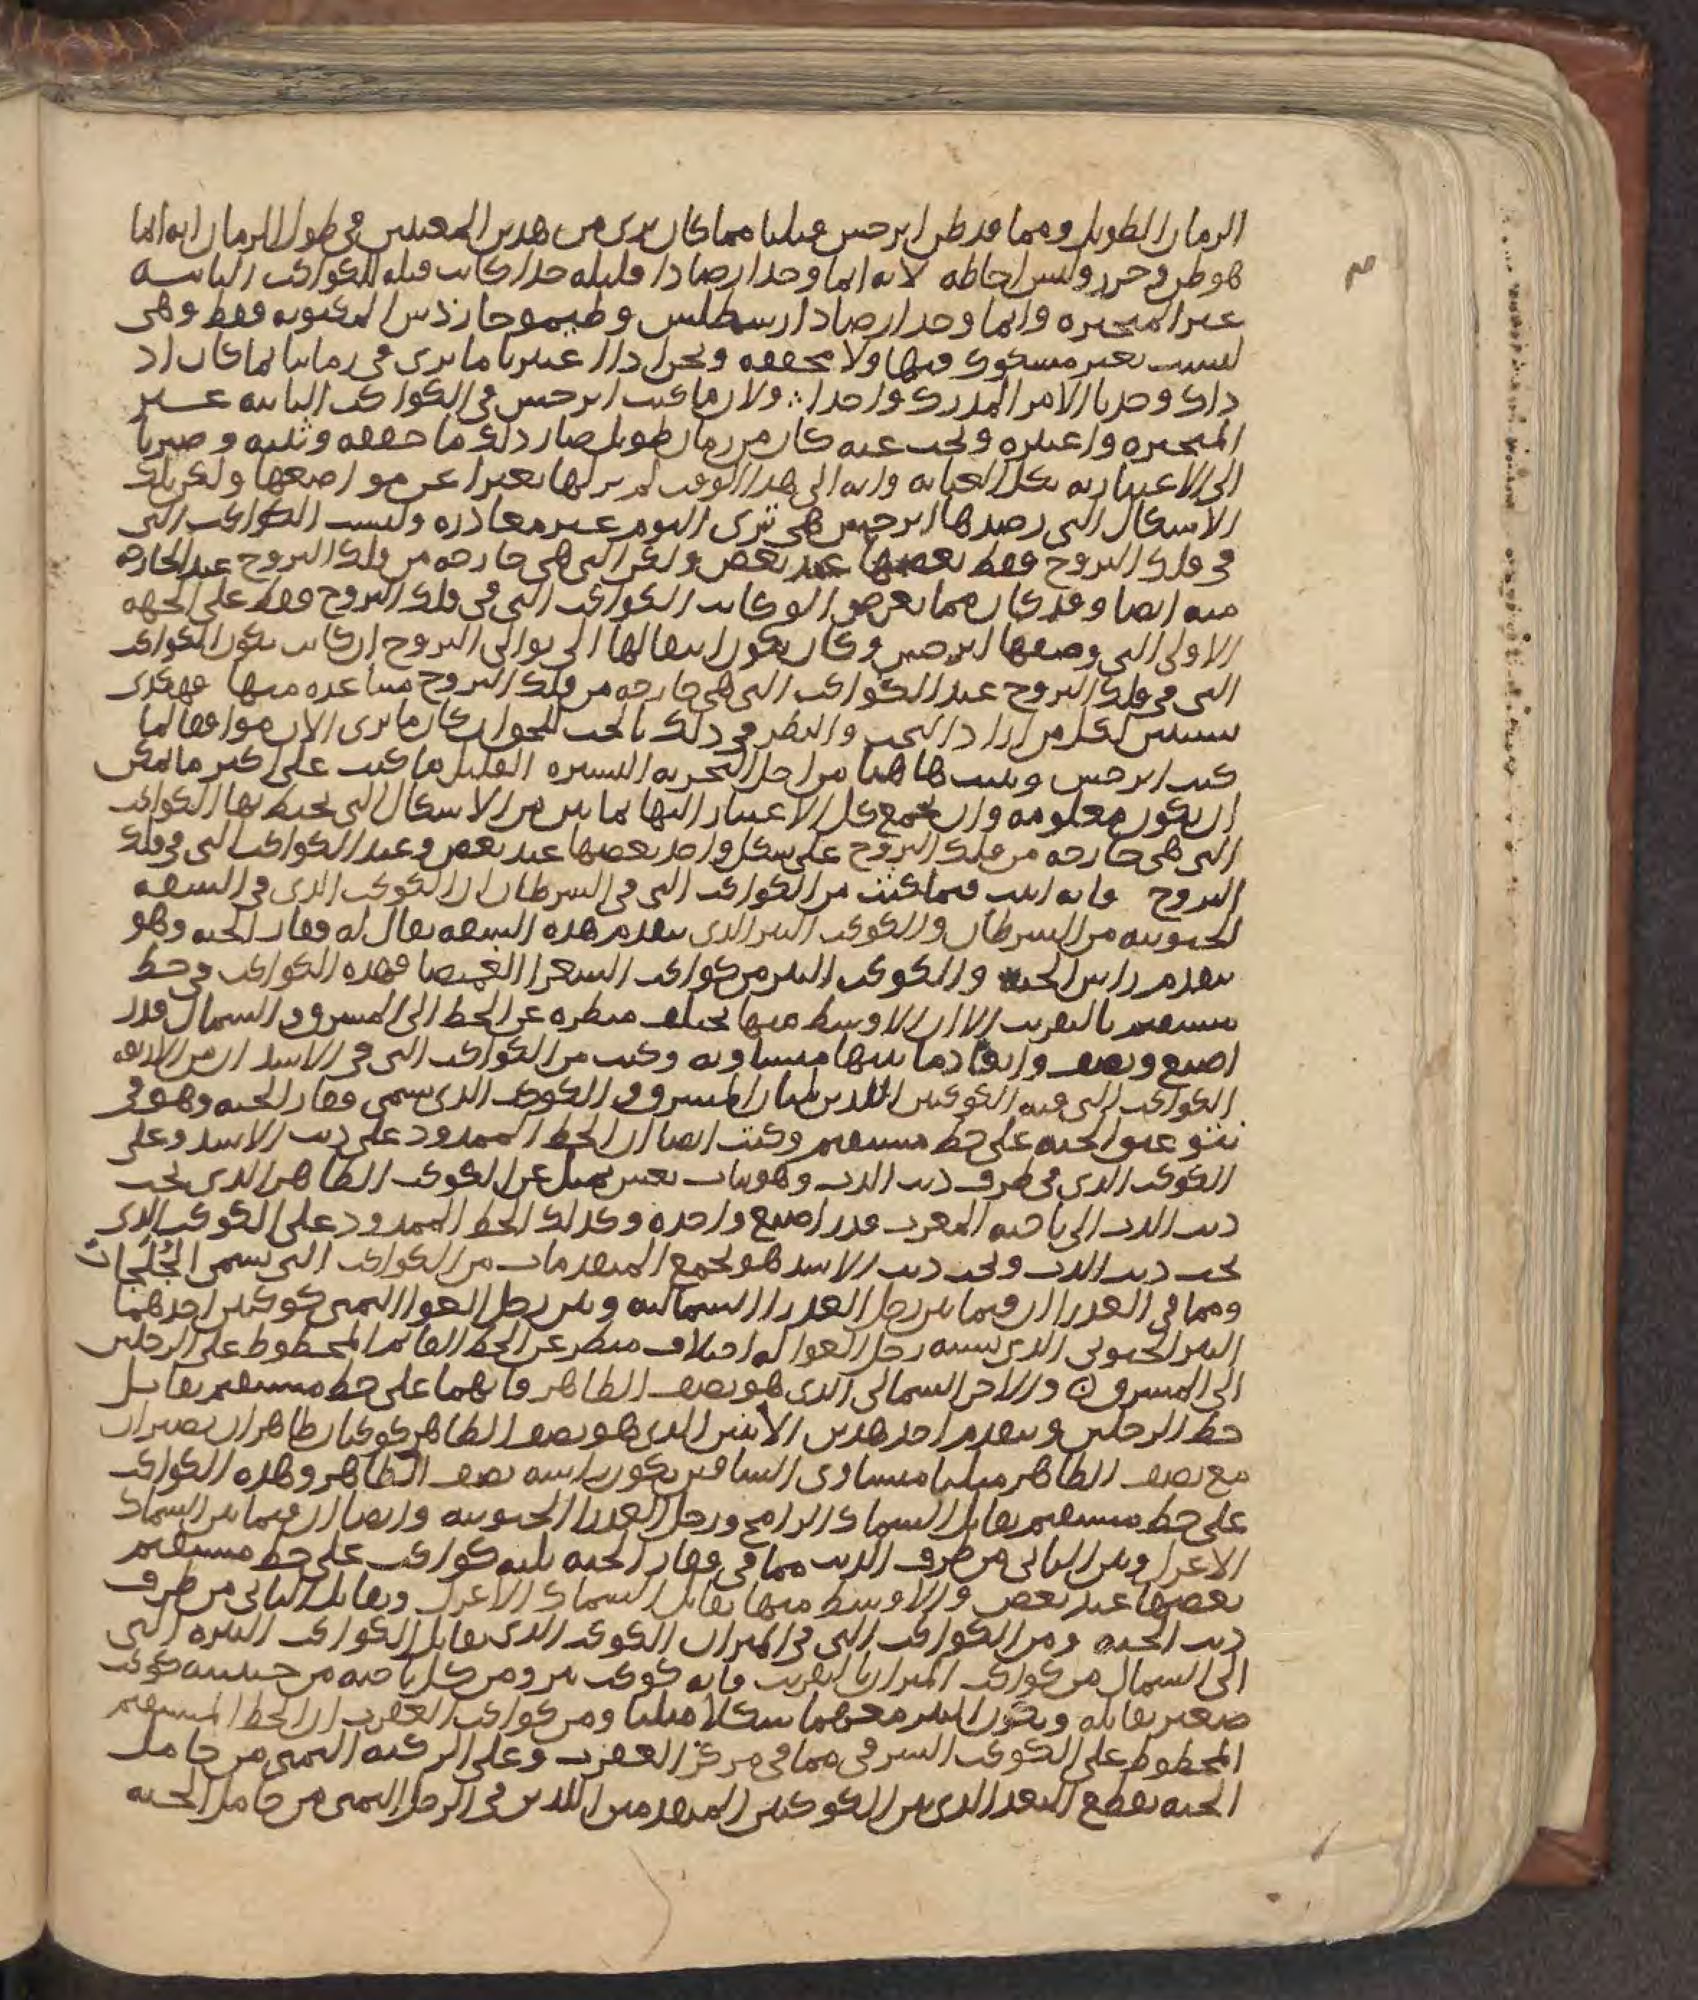 الزمان الطويل ومما قد ظن ابرخس قبلنا مما كان يرى من هذين المعنيين في طول الزمان انه انما
هو ظن وحرر وليس احاطه لانه انما وجد ارصادا قليله جدا كانت قبله للكواكب الثابته
غير المتحيره وانما وجد ارصاد ارسطلس وطيموخارذس المكتوبه فقط وهى
ليست بغير مشكوك فيها ولا محققه ونحن اذا اعتبرنا ما يرى في زماننا بما كان اذ
ذاك وجدنا الامر المدرك واحدا ولان ما كتب ابرخس في الكواكب الثابته غير
المتحيره واعتبره وبحث عنه كان من زمان طويل صار ذلك ما حققه وثبته وصيرنا
الى الاعتبار به بكل العنايه وانه الى هذا الوقت لم ير لها تغيرا عن مواضعها ولكن تلك
الاشكال التى رصدها ابرخس هى ترى اليوم غير مغادره وليست الكواكب التى
في فلك البروج فقط بعضها عند بعض ولكن التى هى خارجه من فلك البروج عند الخارجه
منه ايضا وقد كان مما يعرض لو كانت الكواكب التى في فلك البروج فقط على الجهه
الاولى التى وصفها ابرخس وكان يكون انتقالها الى توالى البروج ان كانت تكون الكواكب
التى في فلك البروج عند الكواكب التى هى خارجه من فلك البروج متباعده منها فهكذى
سيتبين لكل من اراد البحث والنظر في ذلك بالحب للحق ان كان ما يرى الان موافقا لما
كتب ابرخس ونثبت هاهنا من اجل التجربه اليسيره القليل مما كتب على اكثر ما يمكن
ان يكون معلومه وان يجمع كل الاعتبار اليها بما يبين من الاشكال التى تحيط بها الكواكب
التى هى خارجه من فلك البروج على شكل واحد بعضها عند بعض وعند الكواكب التى في فلك
البروج فانه اثبت فيما كتب من الكواكب التى في السرطان ان الكوكب الذى في الشفه
الجنوبيه من السرطان والكوكب النير الذى يتقدم هذه الشفه يقال له فقار الحيه وهو
يتقدم راس الحيه والكوكب النير من كواكب الشعرا الغميصا فهذه الكواكب في خط
مستقيم بالتقريب الا ان الاوسط منها يختلف منظره عن الخط الى المشرق والشمال قدر
اصبع ونصف وابعاد ما بينها متساويه وكتب من الكواكب التى في الاسد ان من الاربعه
الكواكب التى فيه الكوكبين اللذين يليان المشرق والكوكب الذى يسمى فقار الحيه وهو في
نتو عنق الحيه على خط مستقيم وكتب ايضا ان الخط الممدود على ذنب الاسد وعلى
الكوكب الذى في طرف ذنب الدب وهو بنات نعش يميل عن الكوكب الظاهر الذى تحت
ذنب الدب الى ناحيه المغرب قدر اصبع واحده وكذلك الخط الممدود على الكوكب الذى
تحت ذنب الدب وتحت ذنب الاسد هو يجمع المتقدمات من الكواكب التى تسمى الجلجان
ومما في العذرا ان فيما بين رجل العذرا الشماليه وبين رجل العوا اليمنى كوكبين احدهما
النير الجنوبى الذى يشبه رجل العوا له اختلاف منظر عن الخط القائم المخطوط على الرجلين
الى المشرق والاخر الشمالى الذى هو نصف الظاهر فانهما على خط مستقيم يقابل
خط الرجلين ويتقدم احد هذين الاثنين الذى هو نصف الظاهر كوكبان ظاهران يصيران
مع نصف الظاهر مثلثا متساوى الساقين يكون راسه نصف الظاهر وهذه الكواكب
على خط مستقيم يقابل السماك الرامح ورجل العذرا الجنوبيه وايضا ان فيما بين السماك
الاعزل وبين الثانى من طرف الذنب مما في فقار الحيه ثلثه كواكب على خط مستقيم
بعضها عند بعض والاوسط منها يقابل السماك الاعزل ويقابل الثانى من طرف
ذنب الحيه ومن الكواكب التى في الميزان الكوكب الذى يقابل الكواكب النيره التى
الى الشمال من كواكب الميزان بالتقريب فانه كوكب نير ومن كل ناحيه من جنبيه كوكب
صغير يقابله ويكون النير معهما شكلا مثلثا ومن كواكب العقرب ان الخط المستقيم
المخطوط على الكوكب الشرقى مما في مركز العقرب وعلى الركبه اليمنى من حامل
الحيه يقطع البعد الذى بين الكوكبين المتقدمين اللذين في الرجل اليمنى من حامل الحيه